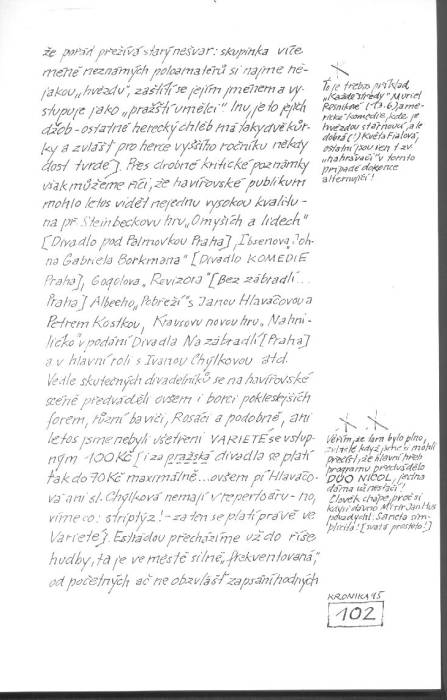 že pořád přežívá starý nešvar: skupinka více
méně neznámých poloamatérů si najme ně-
jakou „hvězdu", zaštítí se jejím jménem a vy-
stupuje jako „pražští umělci". Inu, je to jejich
džob - ostatně herecký chléb má taky dvě kůr-
ky a zvlášť pro herce vyššího ročníku někdy
dost tvrdé]. Přes drobné kritické poznámky
však můžeme říci, že havířovské publikum
mohlo letos vidět nejednu vysokou kvalitu -
na př. Steinbeckovu hru „O myších a lidech"
[Divadlo pod Palmovkou Praha], Ibsenova „Joh-
na Gabriela Borkmana" [Divadlo KOMEDIE
Praha], Gogolova „Revizora" [Bez zábradlí...
Praha] Albeeho „Pobřeží" s Janou Hlaváčovou a
Petrem Kostkou, Krausovu novou hru „Nahni-
ličko" v podání Divadla Na zábradlí [Praha]
a v hlavní roli s Ivanou Chýlkovou atd.
Vedle skutečných divadelníků se na havířovské
scéně předváděli ovšem i borci pokleslejších
forem, různí baviči, Rosáci a podobně, ani
letos jsme nebyli ušetřeni VARIETÉ se vstup-
ným 100 Kč [i za pražská divadla se platí
tak do 70 Kč maximálně... ovšem pí Hlaváčo-
vá ani sl. Chýlková nemají v repertoáru - no,
víme co: striptýz! - za ten se platí právě ve
Varieté]. Estrádou přecházíme už do říše
hudby, ta je ve městě silně „frekventovaná",
od početných ač ne obzvlášť zápisuhodných
X
To je třebas příklad
„Každé středy" Muriel
Resnikové (13.6), ame-
rické komedie, kde je
hvězdou stárnoucí, ale
dobrá (!) Květa Fialová,
ostatní jsou jen tzv.
„nahrávači" v tomto
případě dokonce
alternující!
X X
Věřím, že tam bylo plno,
zvláště když jsme si mohli
přečíst, že hlavní hřeb
programu předvádělo
DUO NICOL, jedna
dáma už nestačí!
Člověk chápe, proč si
kdysi dávno Mistr Jan Hus
povzdychl: Sancta sim-
plicitas! [svatá prostoto!]
KRONIKA 95
102